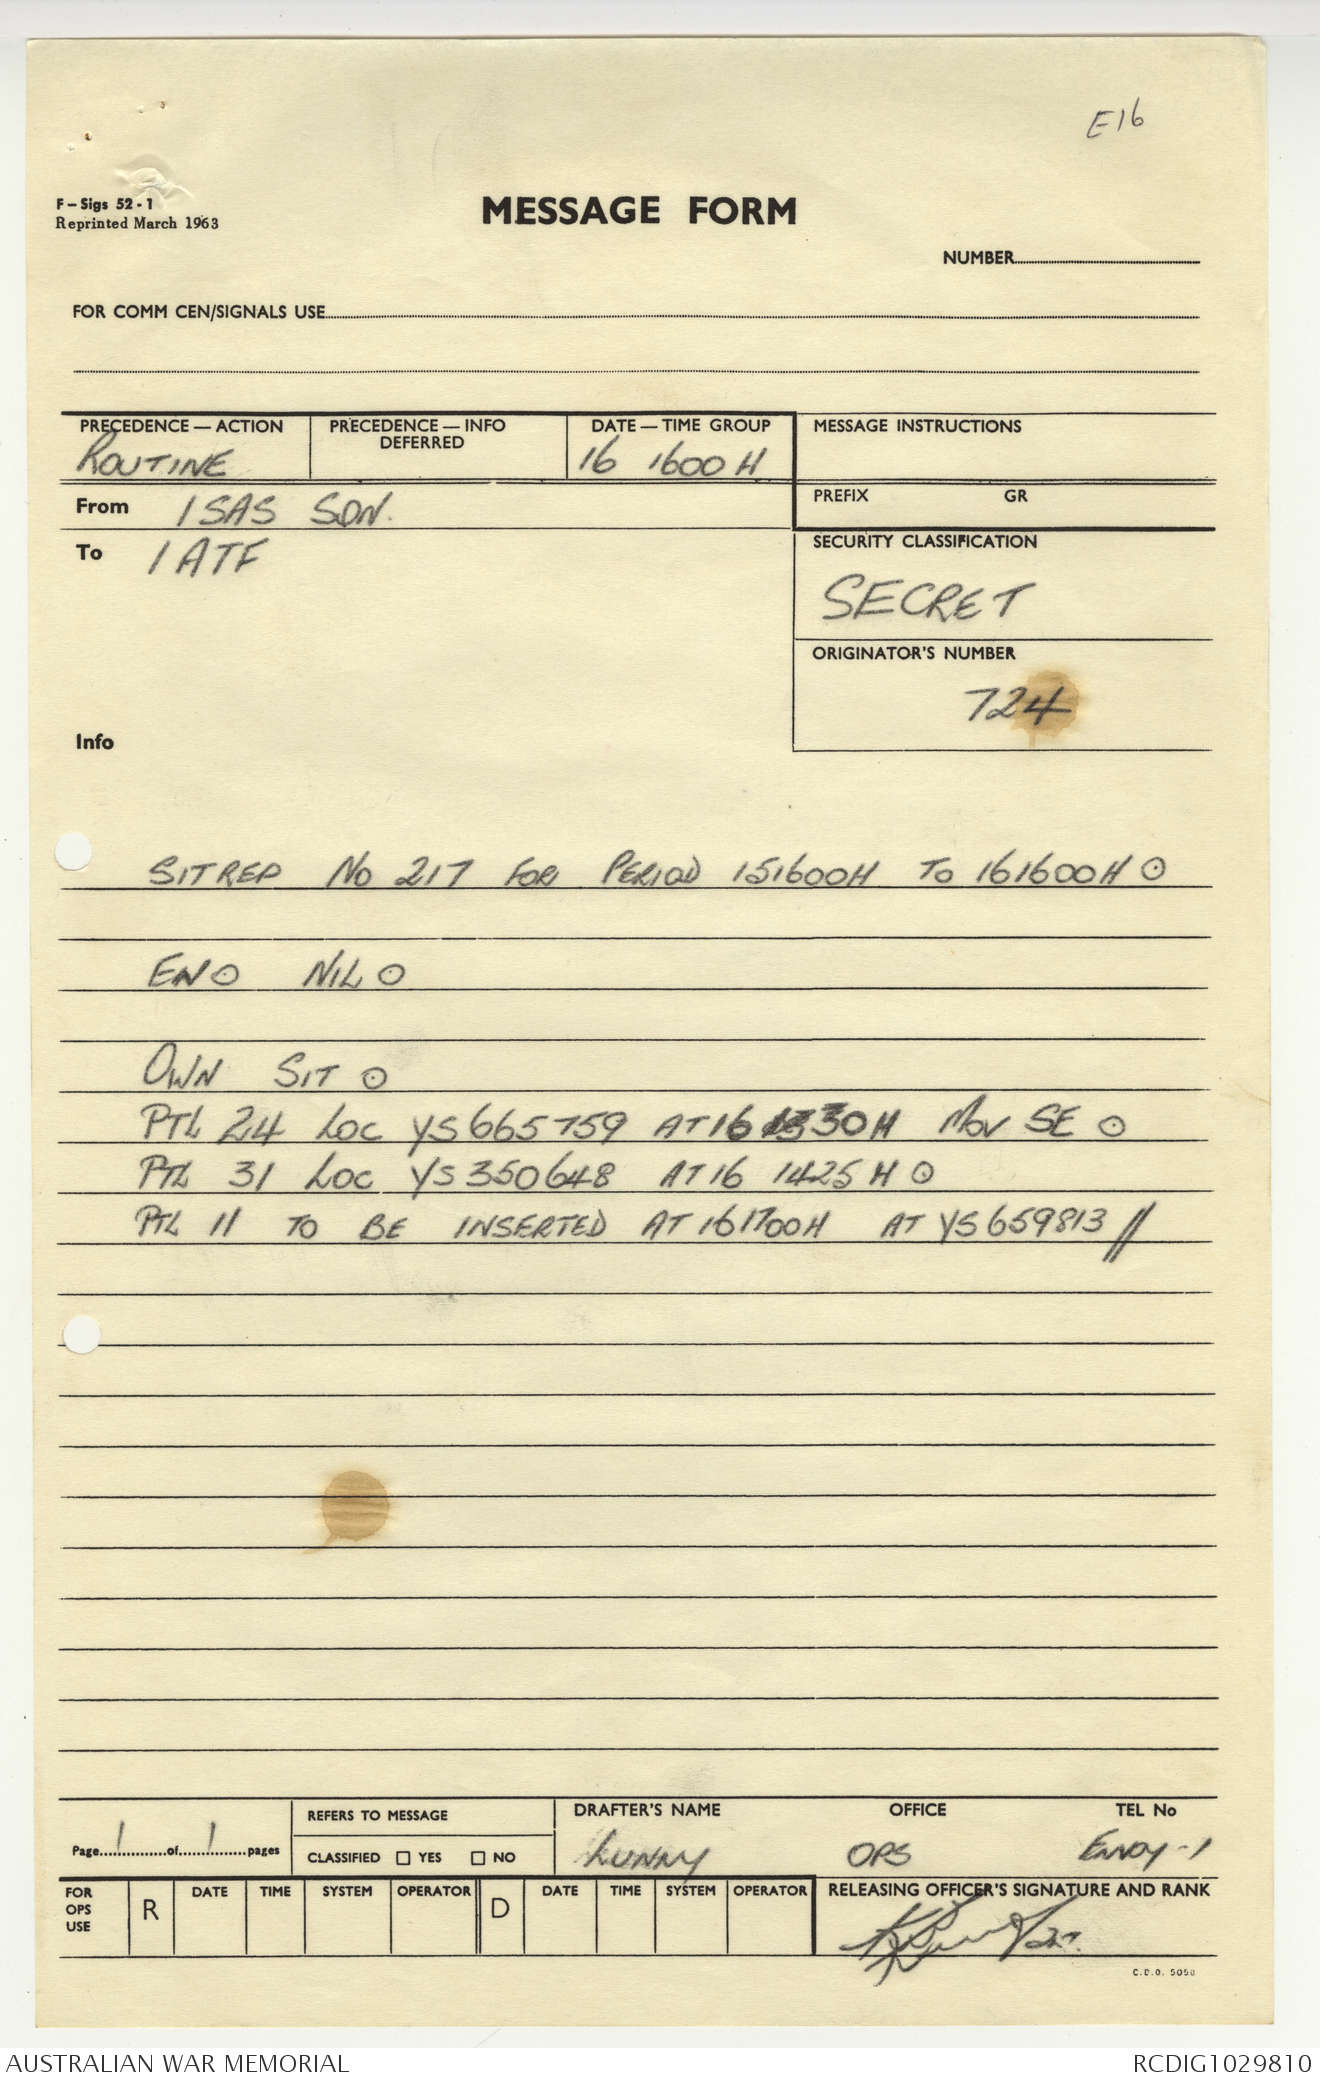 E16
F – Sigs 52 - 1
Reprinted March 1963
MESSAGE FORM
NUMBER
FOR COMM CEN/SIGNALS USE
PRECEDENCE — ACTION
ROUTINE
PRECEDENCE — INFO
DEFERRED
DATE — TIME GROUP
16 1600 H
MESSAGE INSTRUCTIONS
From 1 SAS SQN.
PREFIX GR
To 1 ATF
SECURITY CLASSIFICATION
SECRET
ORIGINATOR'S NUMBER
724
Info
SITREP No 217 FOR PERIOD 151600H TO 161600H ⊙
EN ⊙ NIL ⊙
OWN SIT ⊙
PTL 24 LOC YS665759 AT 16 1330H MOV SE ⊙
PTL 31 LOC YS350648 AT 16 1425H ⊙
PTL 11 TO BE INSERTED AT 161700H AT YS659813 //
Page 1 of 1 pages
REFERS TO MESSAGE
CLASSIFIED ☐ YES ☐ NO
DRAFTER'S NAME OFFICE TEL No
LUNNY OPS ENVOY-1
FOR OPS USE R DATE TIME SYSTEM OPERATOR D DATE TIME SYSTEM OPERATOR
RELEASING OFFICER'S SIGNATURE AND RANK
C.D.O. 5050
AUSTRALIAN WAR MEMORIAL RCDIG1029810